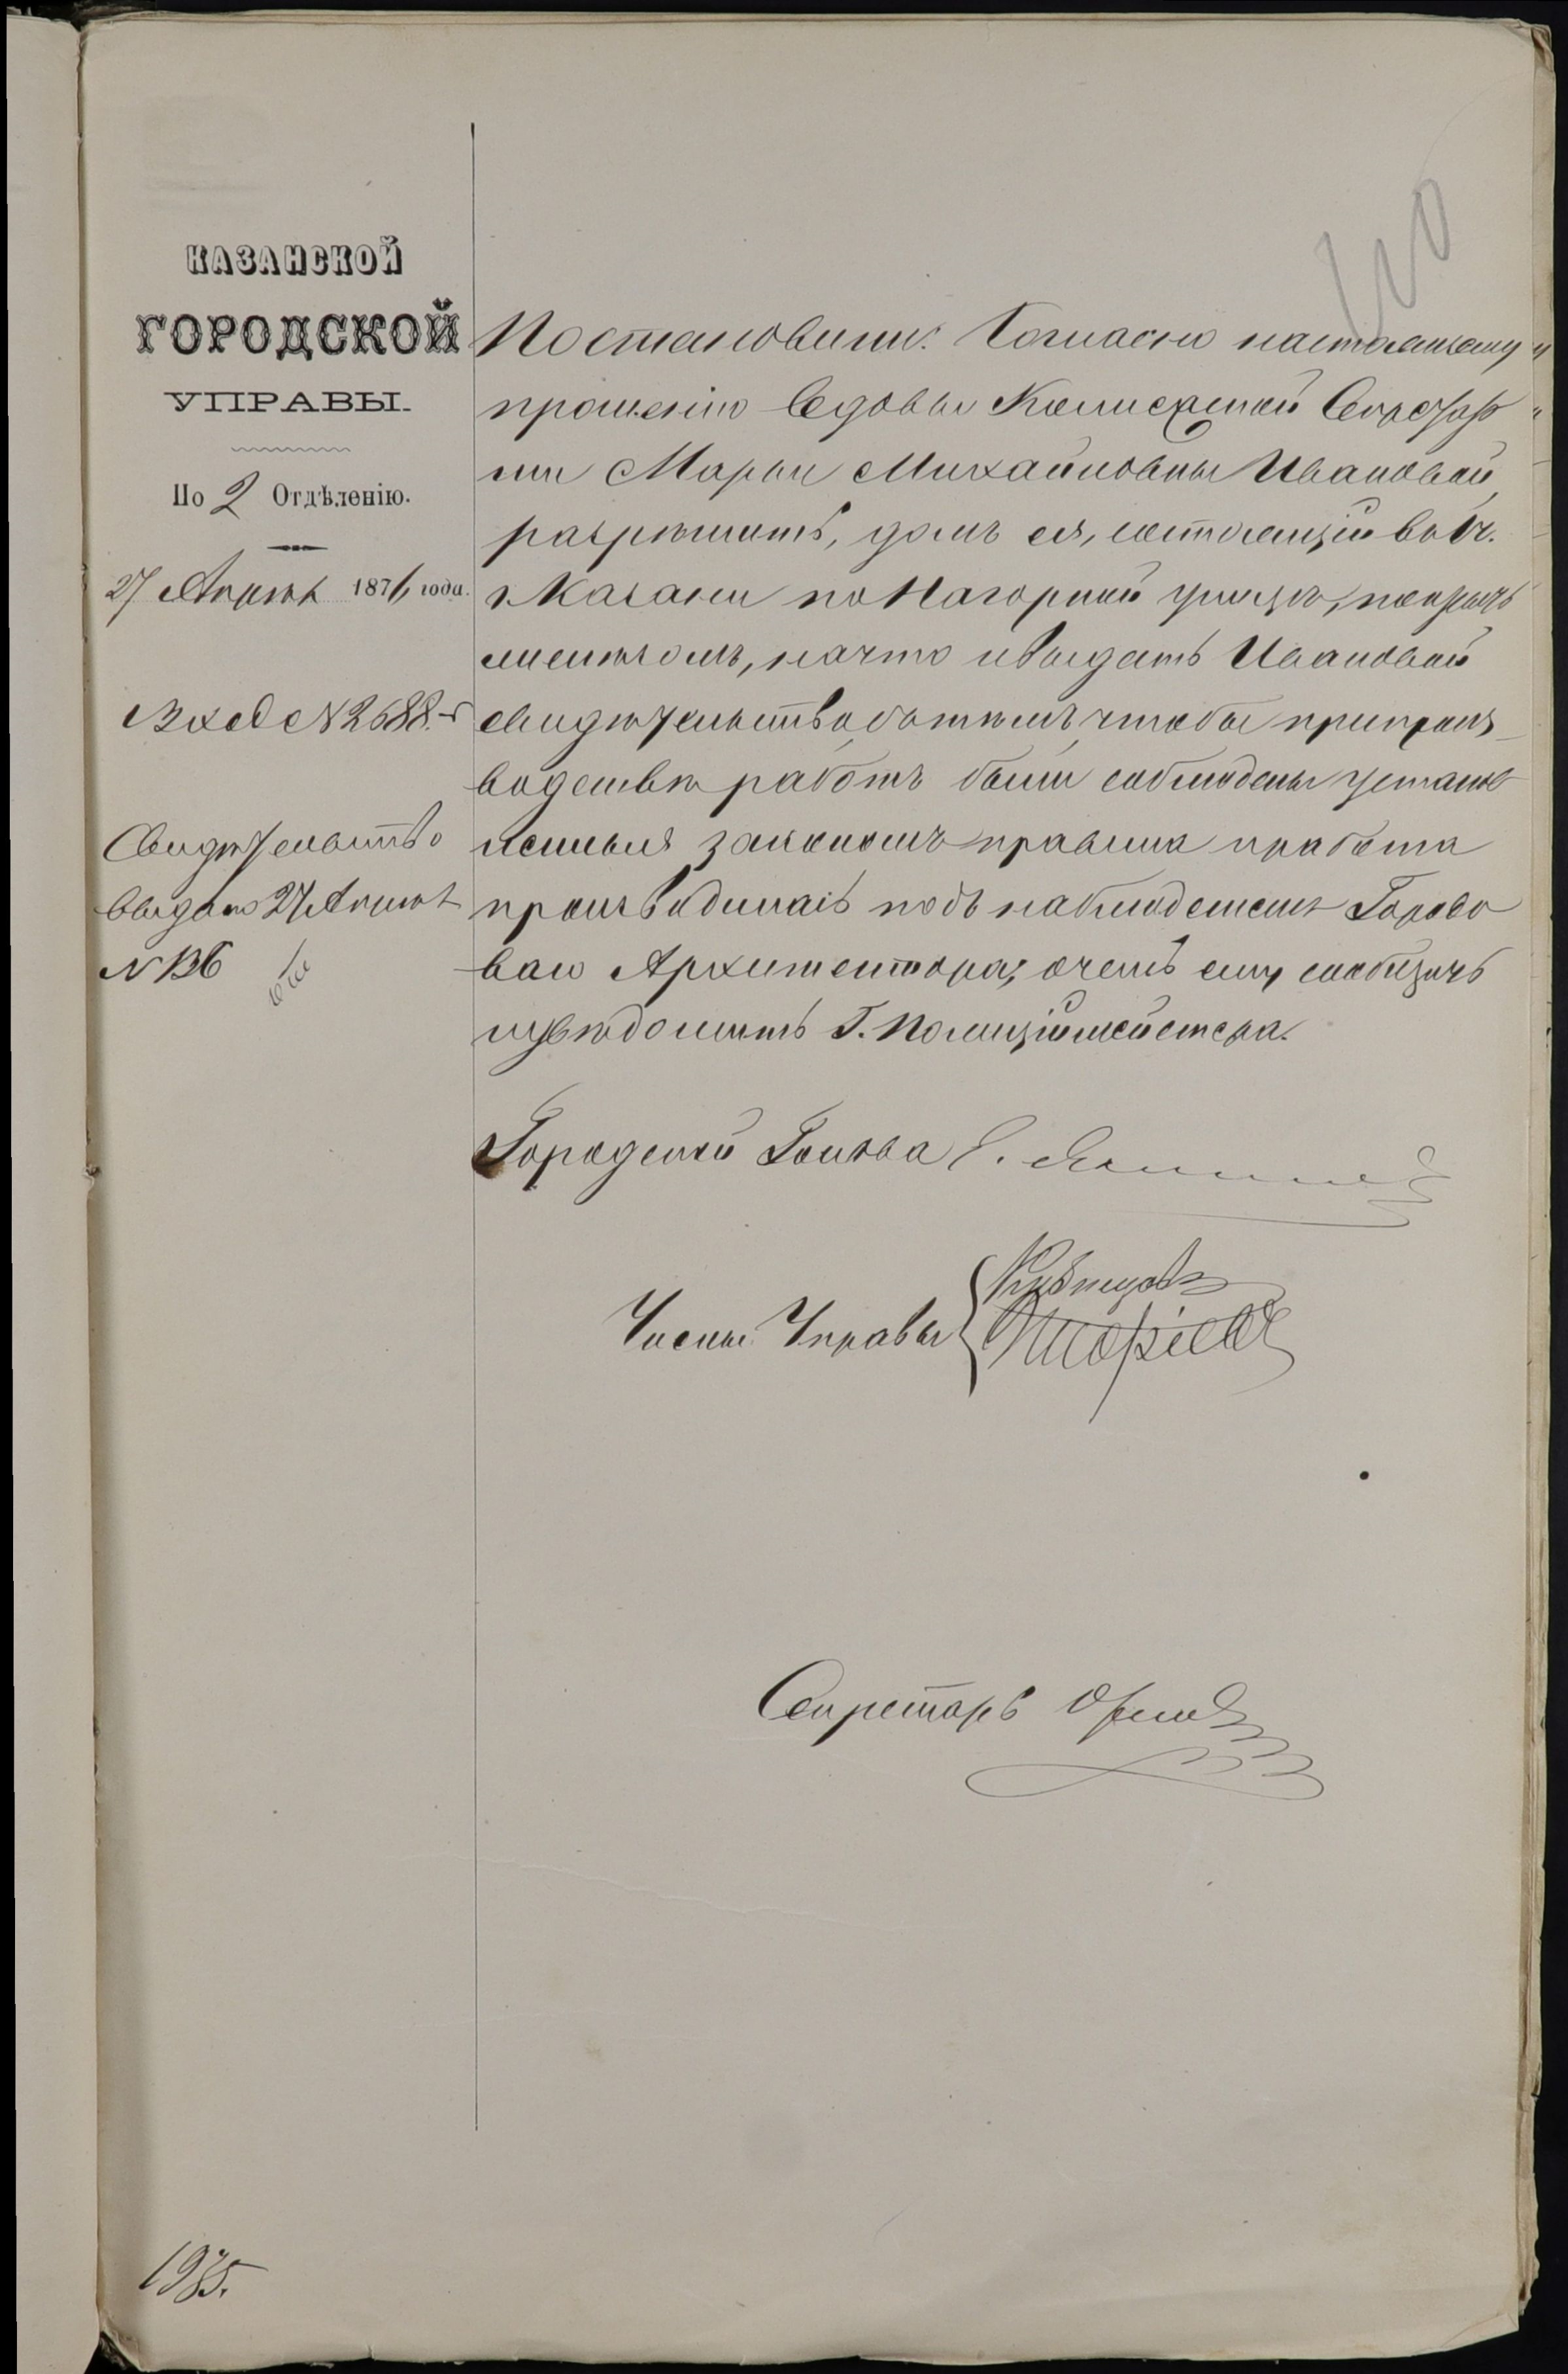 100
КАЗАНСКОЙ
ГОРОДСКОЙ
УПРАВЫ.
По 2 Отдѣленію.
27 Апрѣля 1876 года.
Вход № 2688.
Свидѣтельство
выдано 27 Апрѣля
№ 136
Постановили: Согласно настоящему
прошенію вдовы Колежской Секретар
ши Марьи Михайловны Ивановой,
разрѣшить, домъ ея, состоящій въ
г. Казани по Нагорной улицѣ, покрыть
желѣзомъ, на что и выдать Ивановой
свидѣтельство, съ тѣмъ, чтобы при произ
водствѣ работъ были соблюдены установ
ленныя закономъ правила и работа
производилась подъ наблюденіемъ Городо
ваго Архитектора; о чемъ ему сообщить
и увѣдомить Г. Полиціймейстера.
Городской Голова
Члены Управы
Секретарь Орлов
1935.